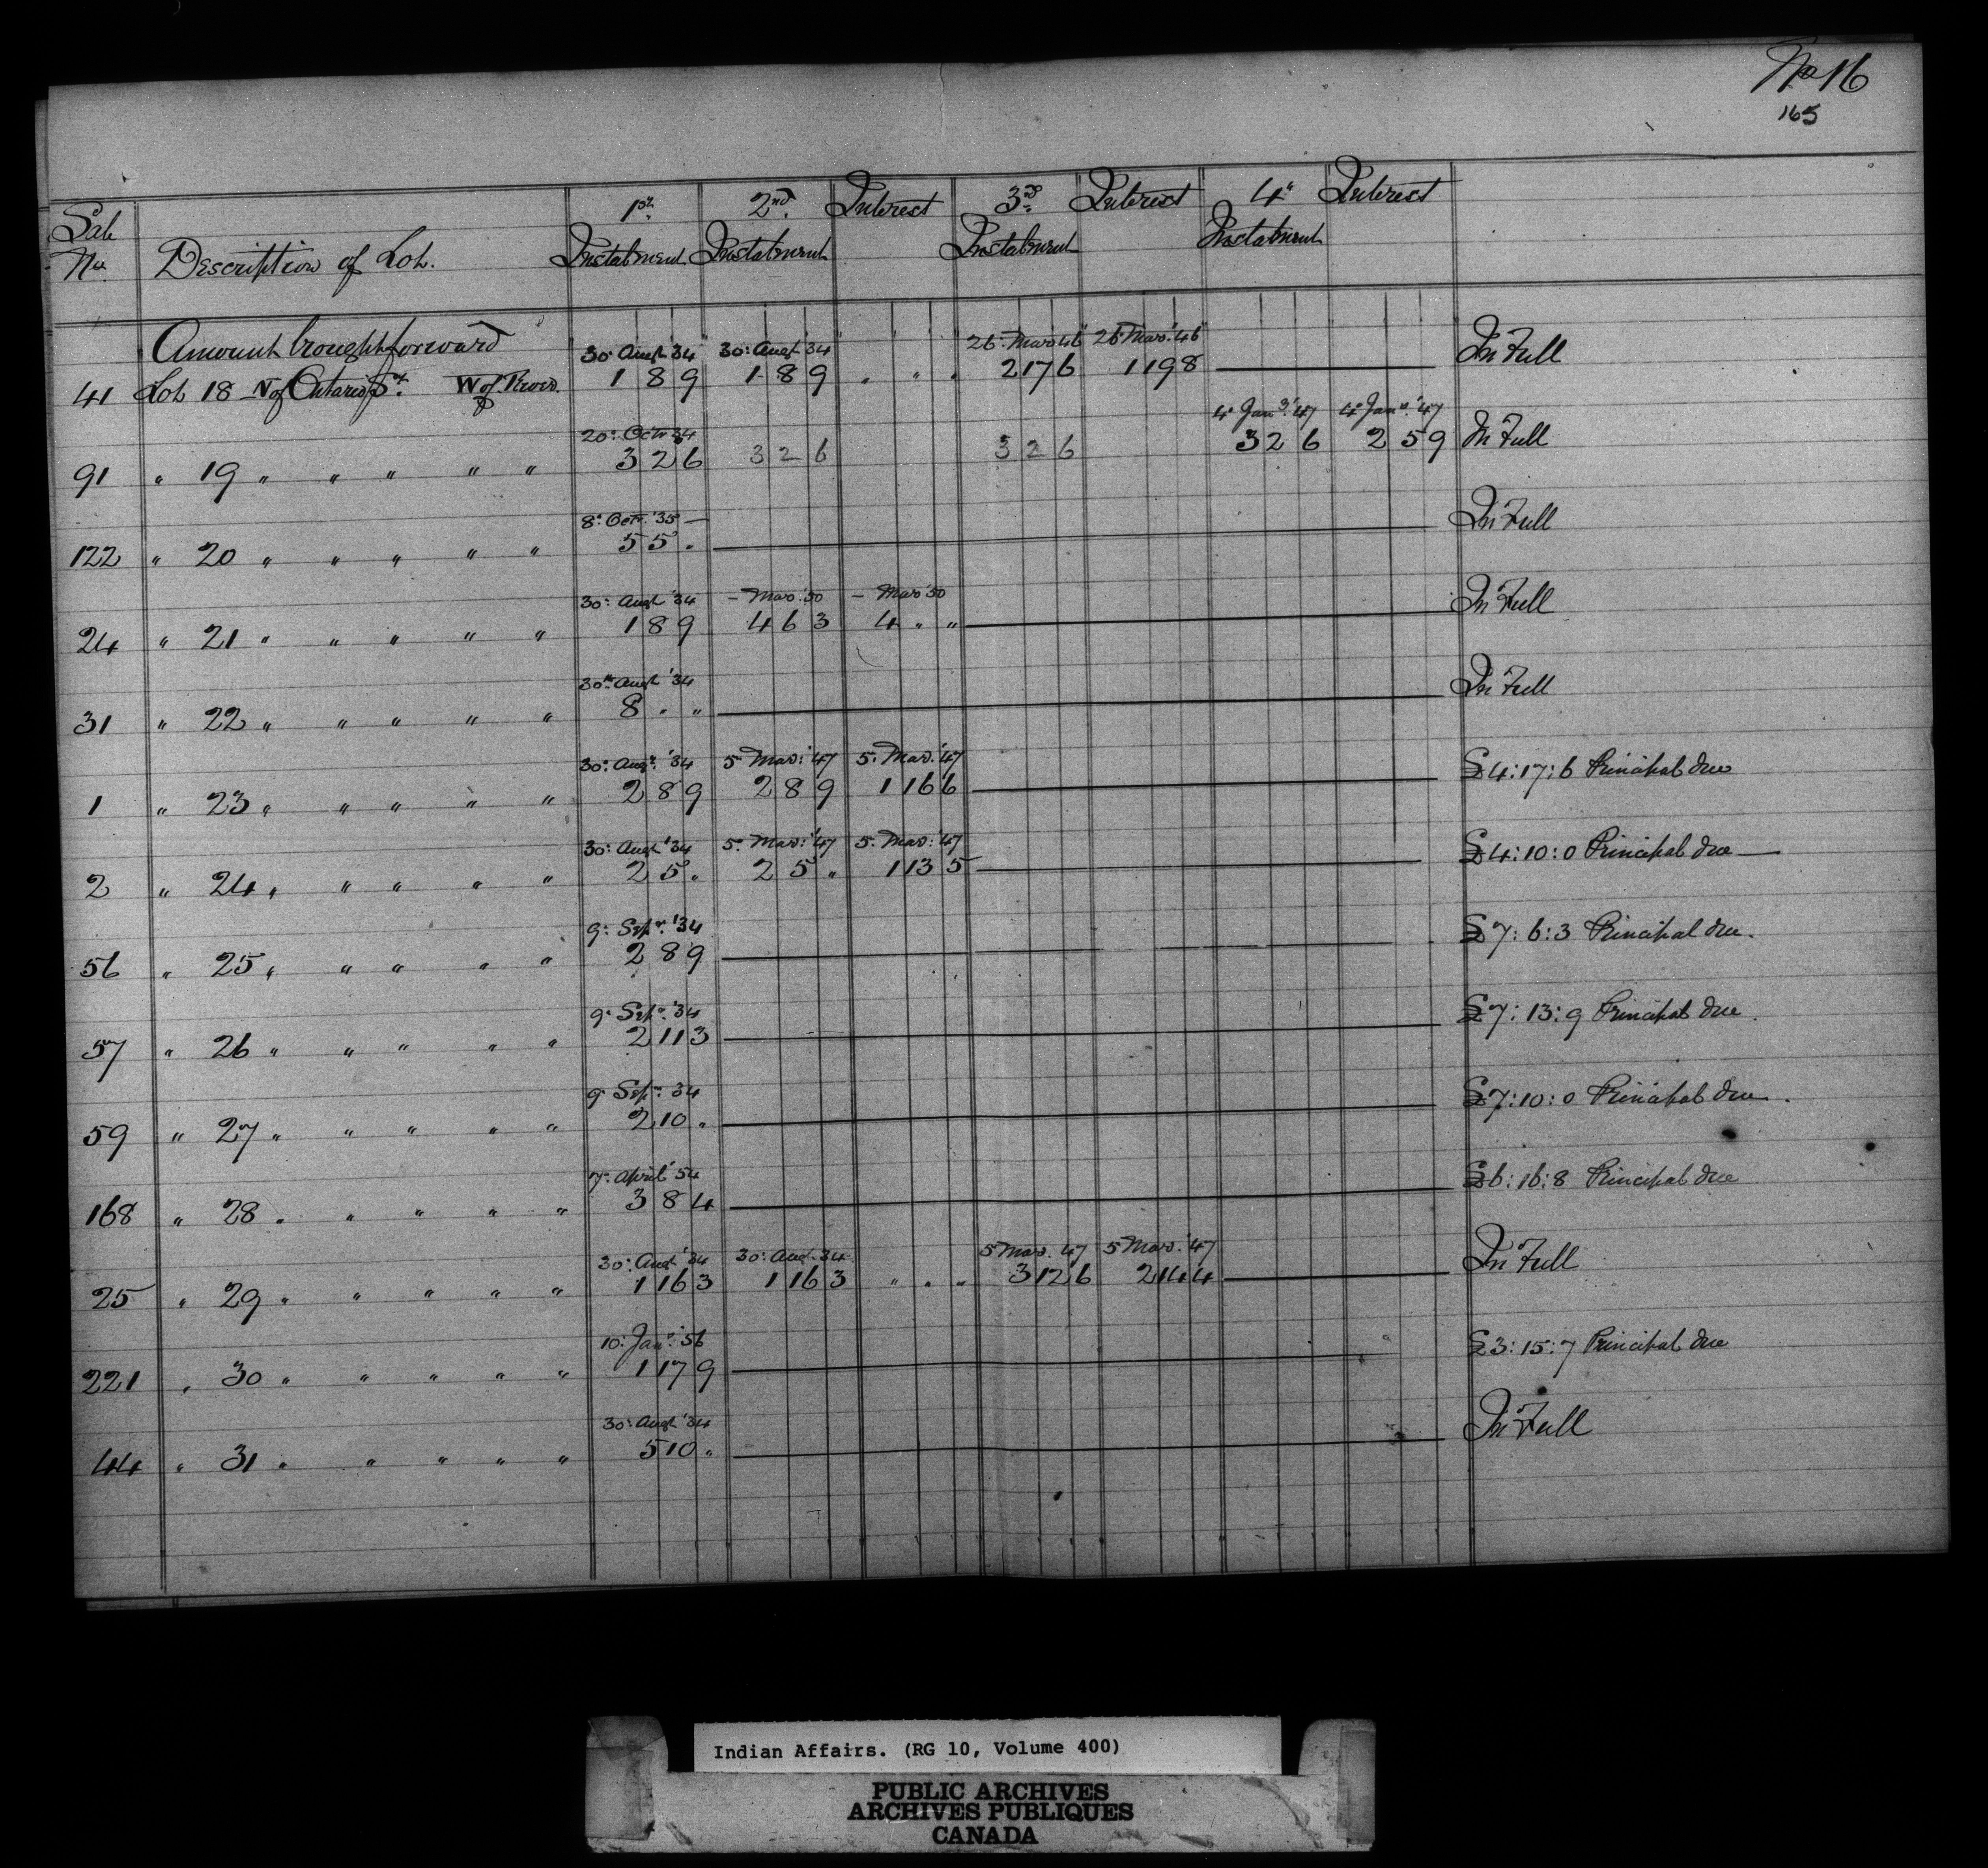 No 16
165
Sale No. Description of Lot. 1st Instalment 2nd Instalment Interest 3rd Instalment Interest 4th Instalment Interest
Amount brought forward
30: Augt '34 30: Augt '34 " " " 26: Mar: 46 26 Mar: '46
41 Lot 18 N of Ontario St. W of River 1 8 9 1 8 9 " " " 2 17 6 1 19 8 In Full
20: Octr 34 4: Jany '47 4: Jany '47
91 " 19 " " " " " 3 2 6 3 2 6 3 2 6 3 2 6 2 5 9 In Full
8: Octr. '35
122 " 20 " " " " " 5 5 " In Full
30: Augt '34 - Mar: 50 - Mar 50
24 " 21 " " " " " 1 8 9 4 6 3 4 " " In Full
30th Augt '34
31 " 22 " " " " " 8 " " In Full
30: Augt: '34 5. Mar: '47 5. Mar. '47
1 " 23 " " " " " 2 8 9 2 8 9 1 16 6 £4:17:6 Principal due
30: Augt '34 5. Mar: '47 5. Mar: '47
2 " 24 " " " " " 2 5 " 2 5 " 1 13 5 £4:10:0 Principal due
9: Sepr. '34
56 " 25 " " " " " 2 8 9 £7:6:3 Principal due.
9: Sepr. '34
57 " 26 " " " " " 2 11 3 £7:13:9 Principal due.
9 Sepr: 34
59 " 27 " " " " " 2 10 " £7:10:0 Principal due.
7: April '54
168 " 28 " " " " " 3 8 4 £6:16:8 Principal due
30: Augt '34 30: Augt. 34 5 Mar. 47 5 Mar. '47
25 " 29 " " " " " 1 16 3 1 16 3 " " " 3 12 6 2 14 4 In Full
10: Jany. '56
221 " 30 " " " " " 1 17 9 £3:15:7 Principal due
30: Augt '34
44 " 31 " " " " " 5 10 " In Full
Indian Affairs. (RG 10, Volume 400)
PUBLIC ARCHIVES
ARCHIVES PUBLIQUES
CANADA